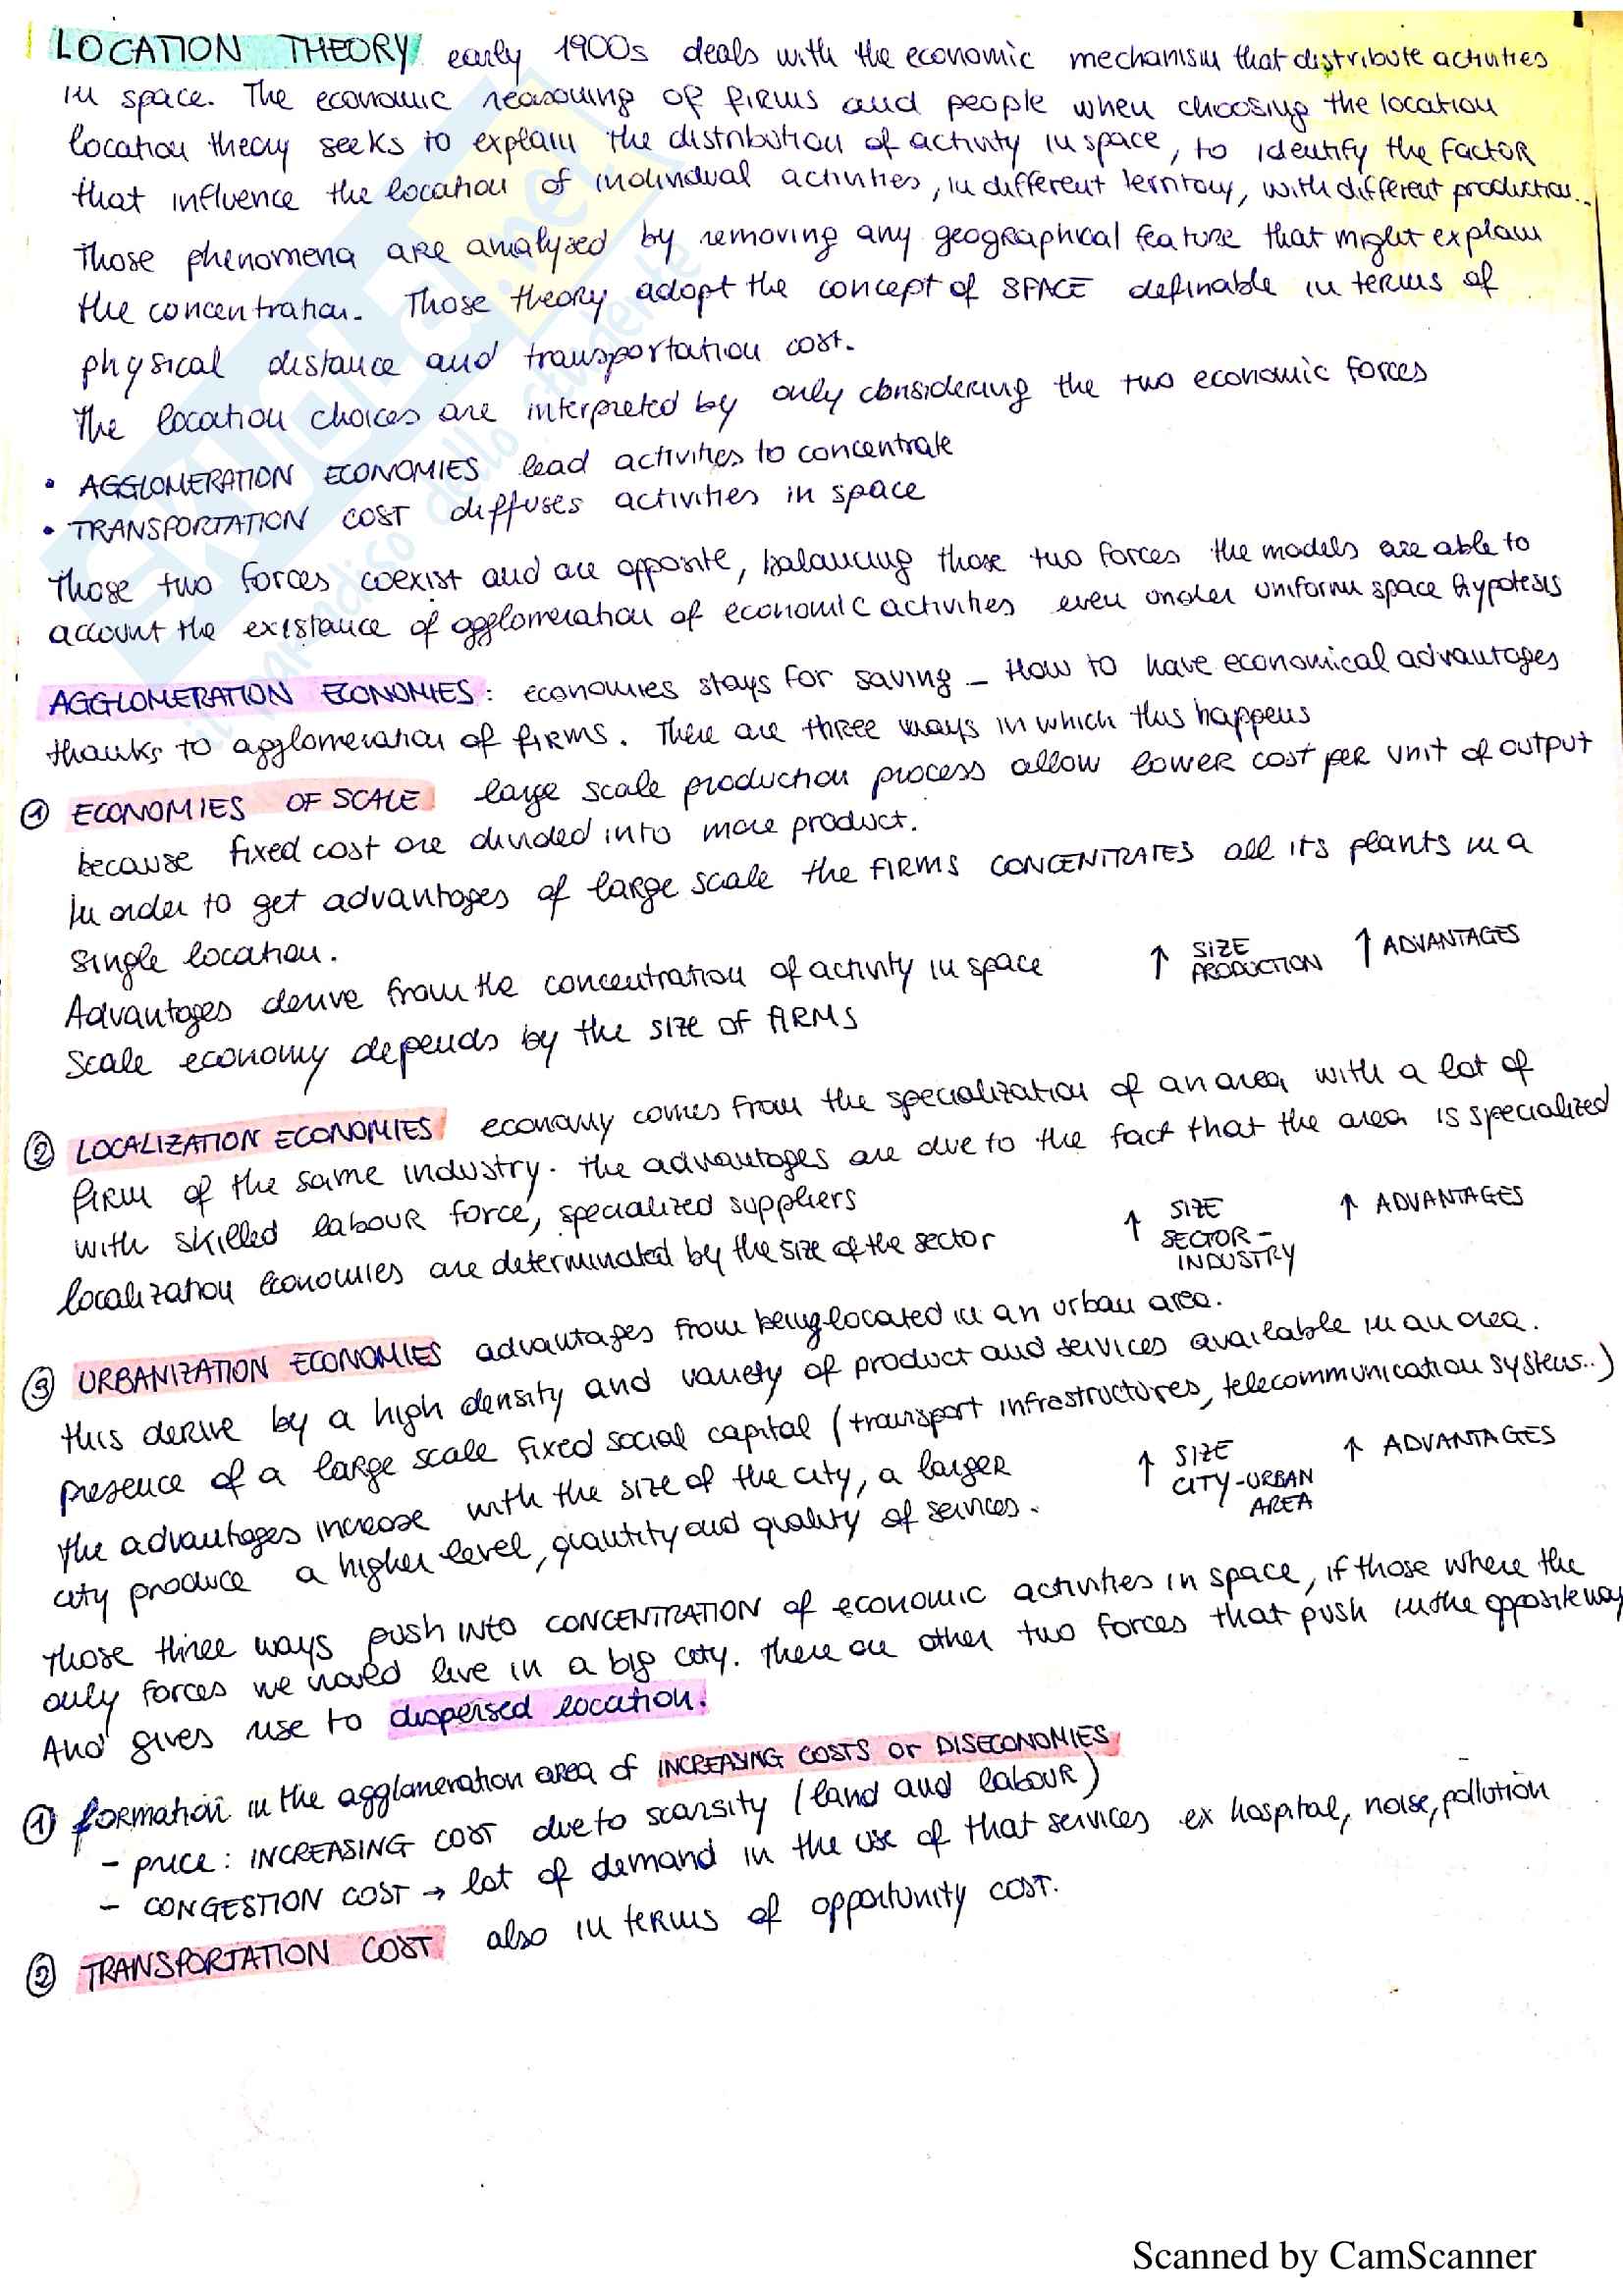 LOCATION THEORY early 1900s deals with the economic mechanism that distribute activities
in space. The economic reasoning of firms and people when choosing the location
location theory seeks to explain the distribution of activity in space, to identify the factor
that influence the location of individual activities, in different territory, with different production..
Those phenomena are analysed by removing any geographical feature that might explain
the concentration. Those theory adopt the concept of SPACE definable in terms of
physical distance and transportation cost.
The location choices are interpreted by only considering the two economic forces
• AGGLOMERATION ECONOMIES lead activities to concentrate
• TRANSPORTATION COST diffuses activities in space
Those two forces coexist and are opposite, balancing those two forces the models are able to
account the existance of agglomeration of economic activities even under uniform space hypotesis
AGGLOMERATION ECONOMIES: economies stays for saving - How to have economical advantages
thanks to agglomeration of firms. There are three ways in which this happens
① ECONOMIES OF SCALE large scale production process allow lower cost per unit of output
because fixed cost are divided into more product.
In order to get advantages of large scale the firms CONCENTRATES all its plants in a
single location.
Advantages derive from the concentration of activity in space ↑ SIZE PRODUCTION ↑ ADVANTAGES
Scale economy depends by the size of firms
② LOCALIZATION ECONOMIES economy comes from the specialization of an area with a lot of
firm of the same industry. The advantages are due to the fact that the area is specialized
with skilled labour force, specialized suppliers
localization economies are determinated by the size of the sector ↑ SIZE SECTOR - INDUSTRY ↑ ADVANTAGES
③ URBANIZATION ECONOMIES advantages from being located in an urban area.
this derive by a high density and variety of product and services available in an area.
presence of a large scale fixed social capital (transport infrastructures, telecommunication systems..)
the advantages increase with the size of the city, a larger ↑ SIZE CITY-URBAN AREA ↑ ADVANTAGES
city produce a higher level, quantity and quality of services.
Those three ways push into CONCENTRATION of economic activities in space, if those where the
only forces we would live in a big city. There are other two forces that push in the opposite way
And gives rise to dispersed location.
① formation in the agglomeration area of INCREASING COSTS or DISECONOMIES
- price: INCREASING COST due to scarsity (land and labour)
- CONGESTION COST → lot of demand in the use of that services ex hospital, noise, pollution
② TRANSPORTATION COST also in terms of opportunity cost.
SKUOLA.net
il paradiso dello studente
Scanned by CamScanner